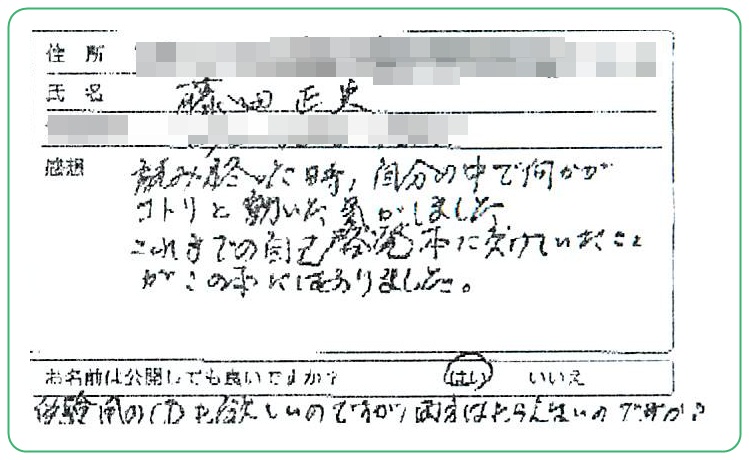 住所
氏名 藤田正史
感想 読み終った時、自分の中で何かが
コトリと動いた気がしました
これまでの自己啓発本に欠けていたこと
がこの本にはありました。
お名前は公開しても良いですか? はい いいえ
体験風の も欲しいのですが、両方はもらえないのですか?